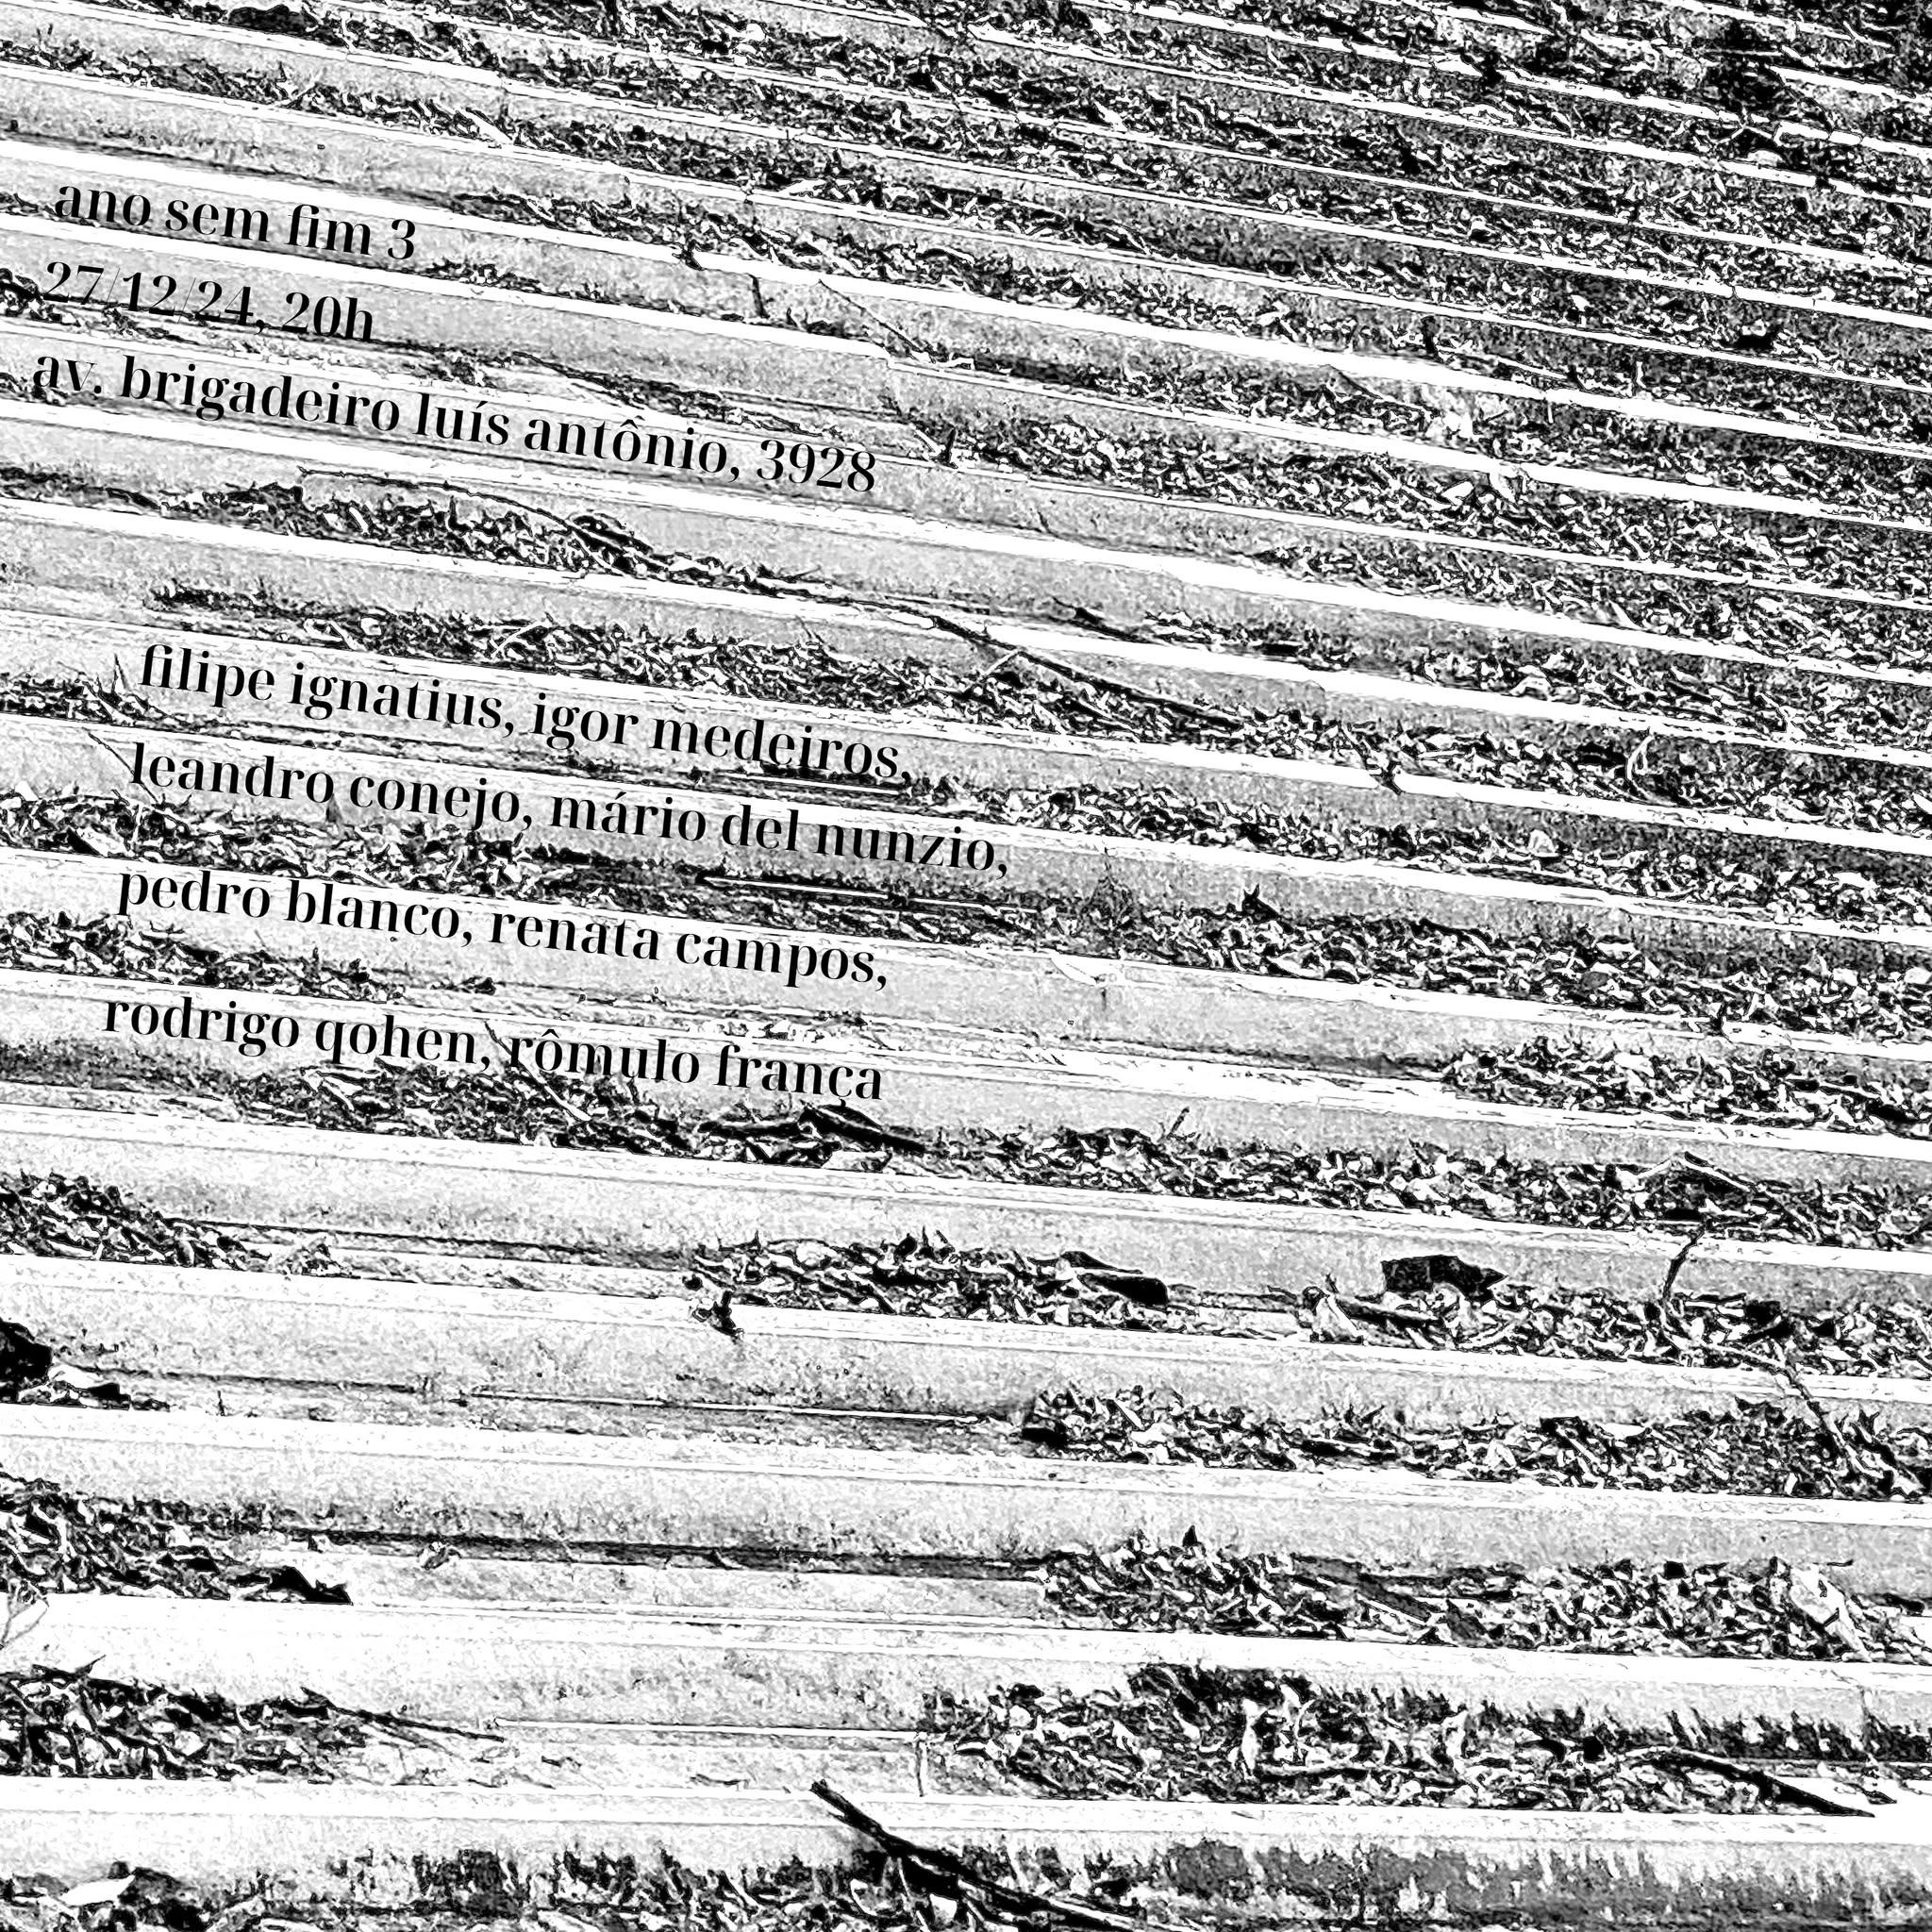 ano sem fim 3
27/12/24, 20h
av. brigadeiro luís antônio, 3928
filipe ignatius, igor medeiros,
leandro conejo, mário del nunzio,
pedro blanco, renata campos,
rodrigo qohen, rômulo frança